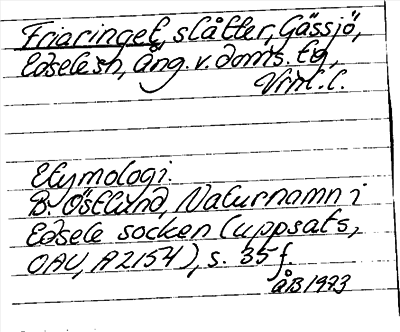 Friaringet, slåtter, Gässjö,
Edsele sn, Ång. v. doms. tg,
Vrml. l.
Etymologi:
B. Östlund, Naturnamn i
Edsele socken (uppsats,
OAU, A2154), s. 35 f.
åB 1973